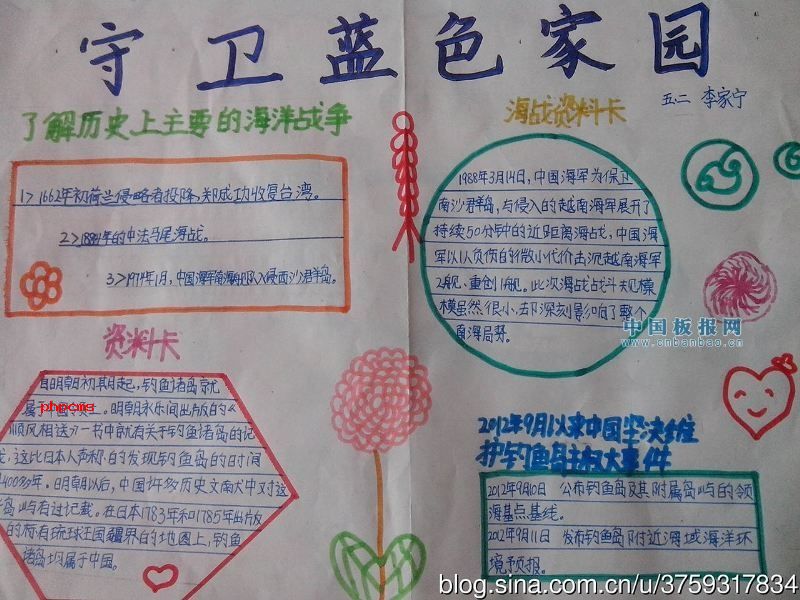 守卫蓝色家园
五二 李家宁
了解历史上主要的海洋战争
1>1662年初荷兰侵略者投降,郑成功收复台湾。
2>1884年的中法马尾海战。
3>1974年1月,中国海军南海舰队入侵西沙群岛。
资料卡
自明朝初期起,钓鱼诸岛就
属
phpcms
明朝永乐间出版的《
顺风相送》一书中就有关于钓鱼诸岛的记
这比日本人声称的发现钓鱼岛的时间
400多年。明朝以后,中国许多历史文南大中对这
岛屿有过记载。在日本1783年和1785年出版
的标有琉球王国疆界的地图上,钓鱼
诸岛均属于中国。
海战资料卡
1988年3月14日,中国海军为保卫
南沙群岛,与侵入的越南海军展开了
持续50分钟的近距离海战,中国海
军以1人负伤的微小代价击沉越南海军
2舰、重创1舰。此次海战战斗规模
模虽然很小,却深刻影响了整个
南海局势。
中国板报网
www.cnbanbao.cn
2012年9月以来中国坚决维
护钓鱼岛主权大事件
2012年9月10日 公布钓鱼岛及其附属岛屿的领
海基点基线。
2012年9月11日 发布钓鱼岛附近海域海洋环
境预报。
blog.sina.com.cn/u/3759317834